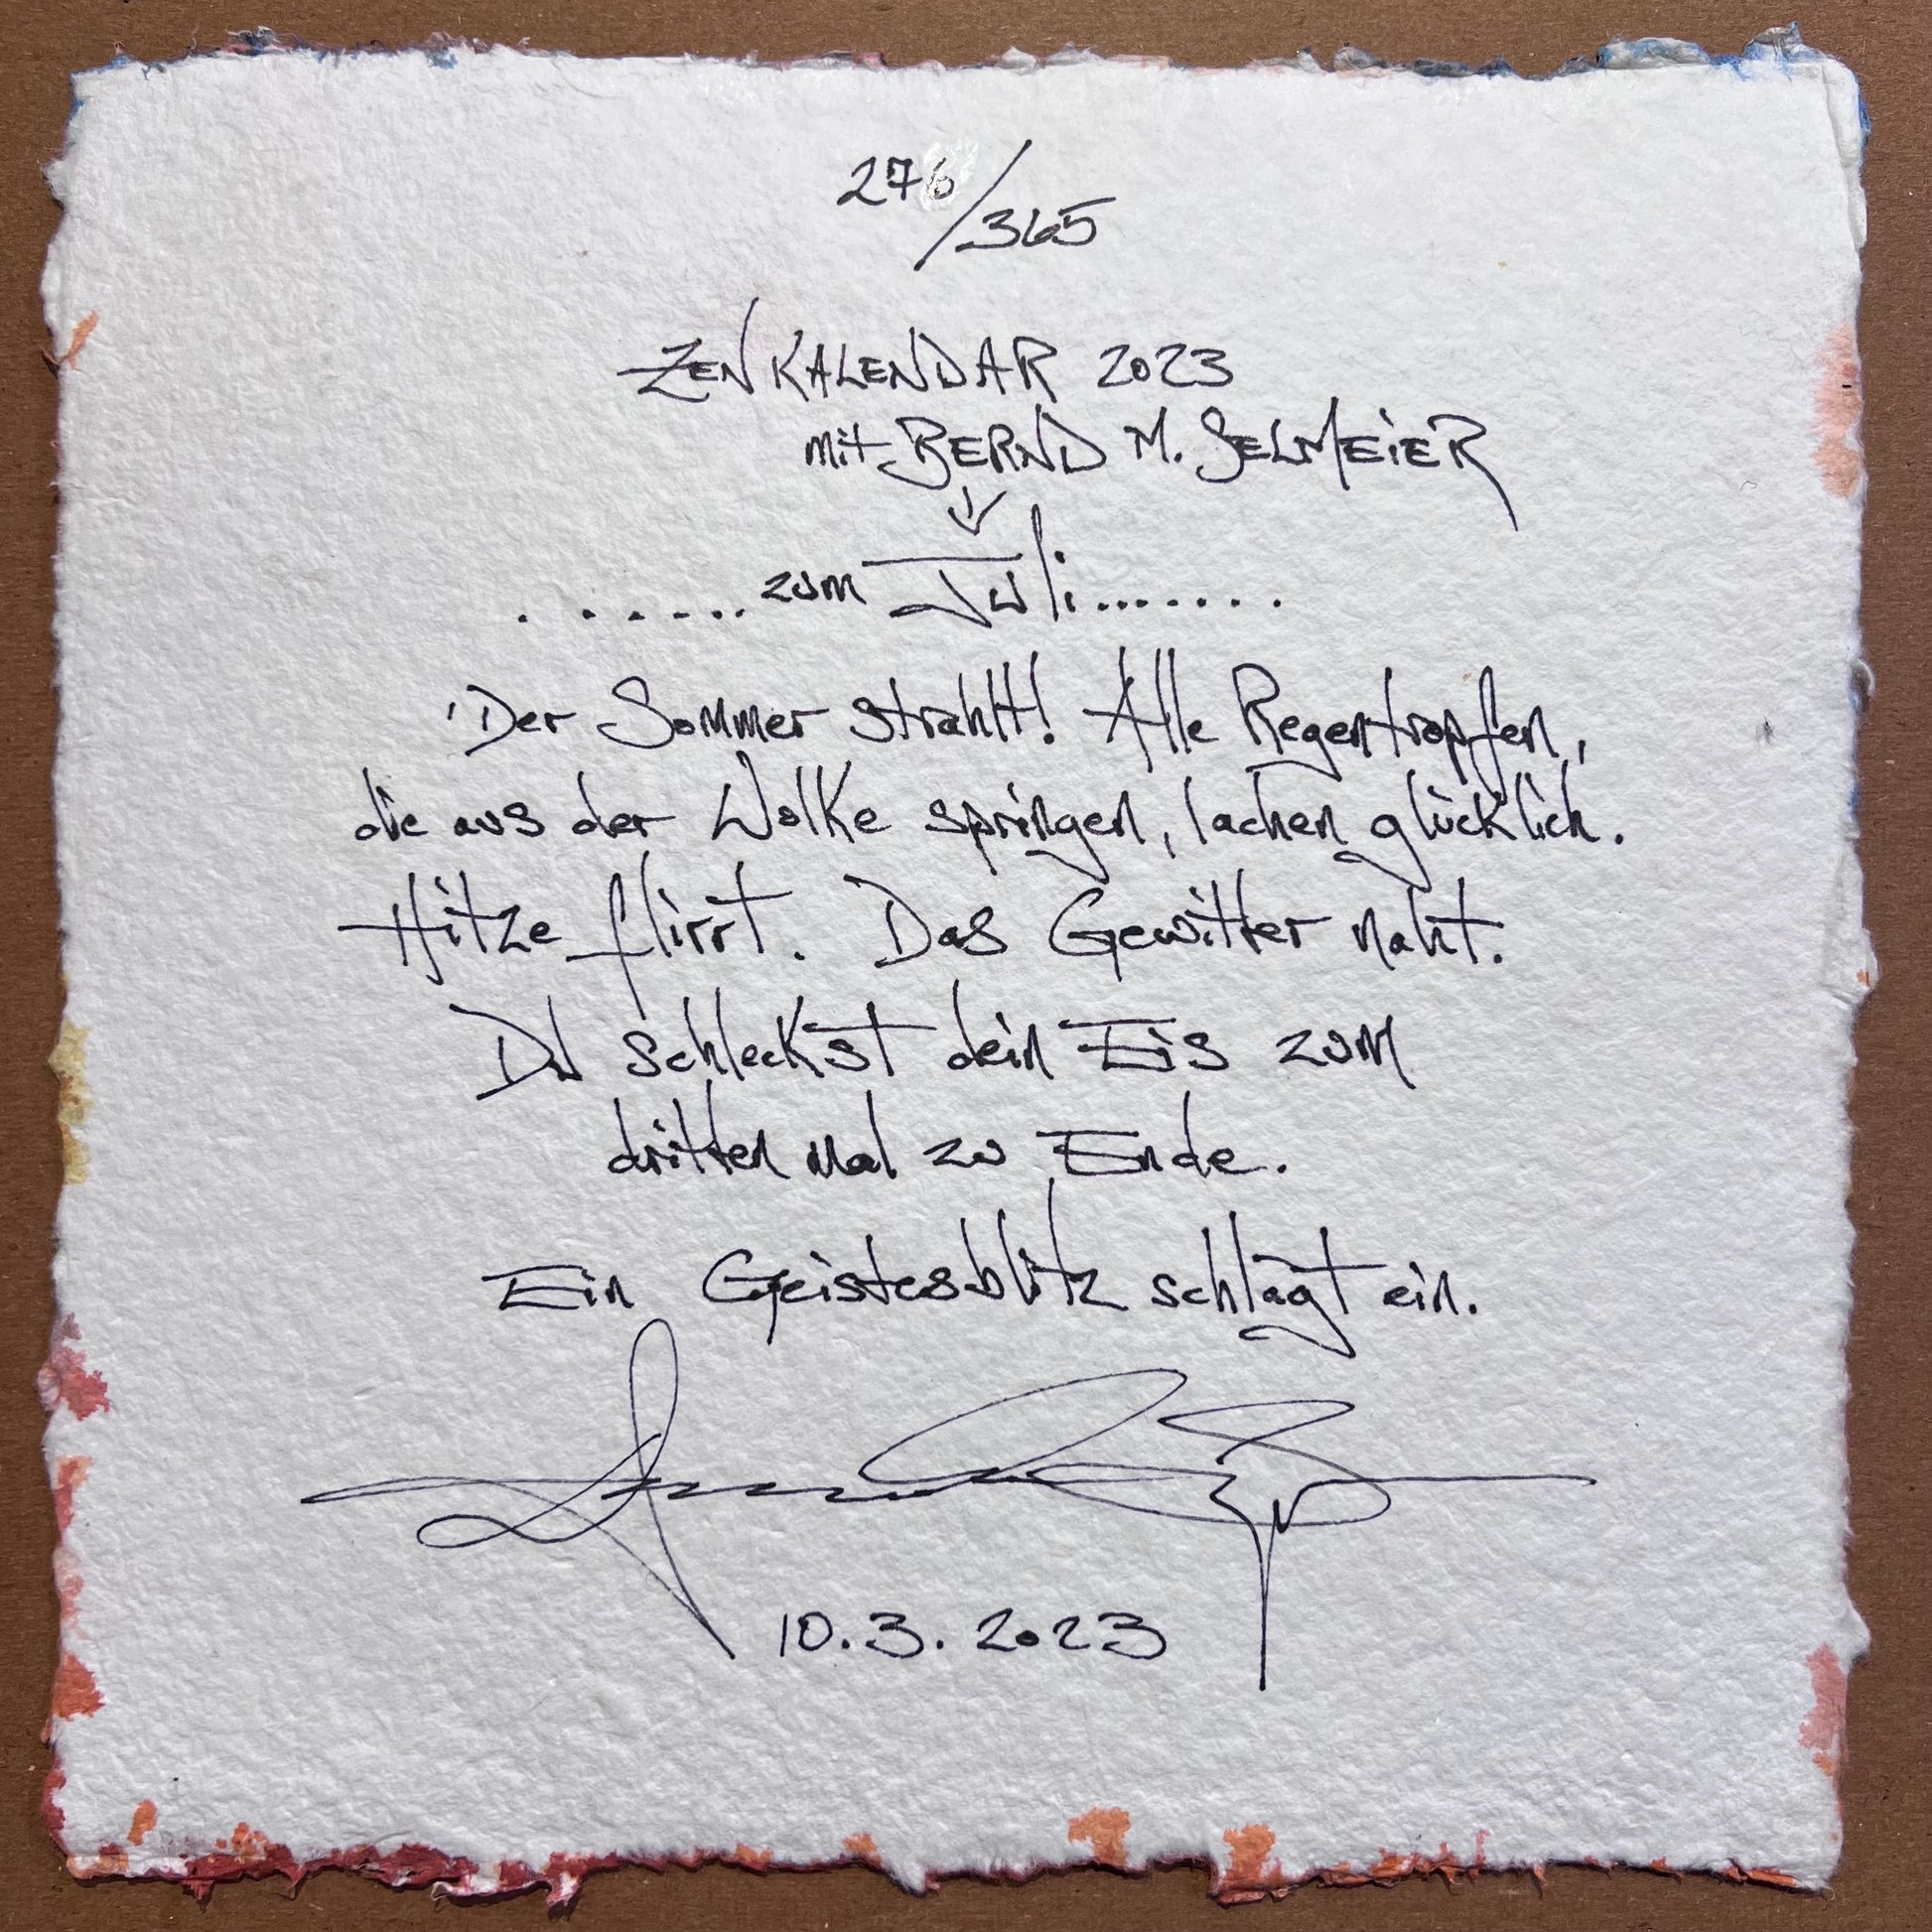 276/365
ZEN KALENDAR 2023
mit BERND M. SELMEIER
. . . . . . . zum Juli . . . . . . . .
'Der Sommer strahlt! Alle Regentropfen,
die aus der Wolke springen, lachen glücklich.
Hitze flirrt. Das Gewitter naht.
Du schleckst dein Eis zum
dritten Mal zu Ende.
Ein Geistesblitz schlägt ein.
10.3.2023